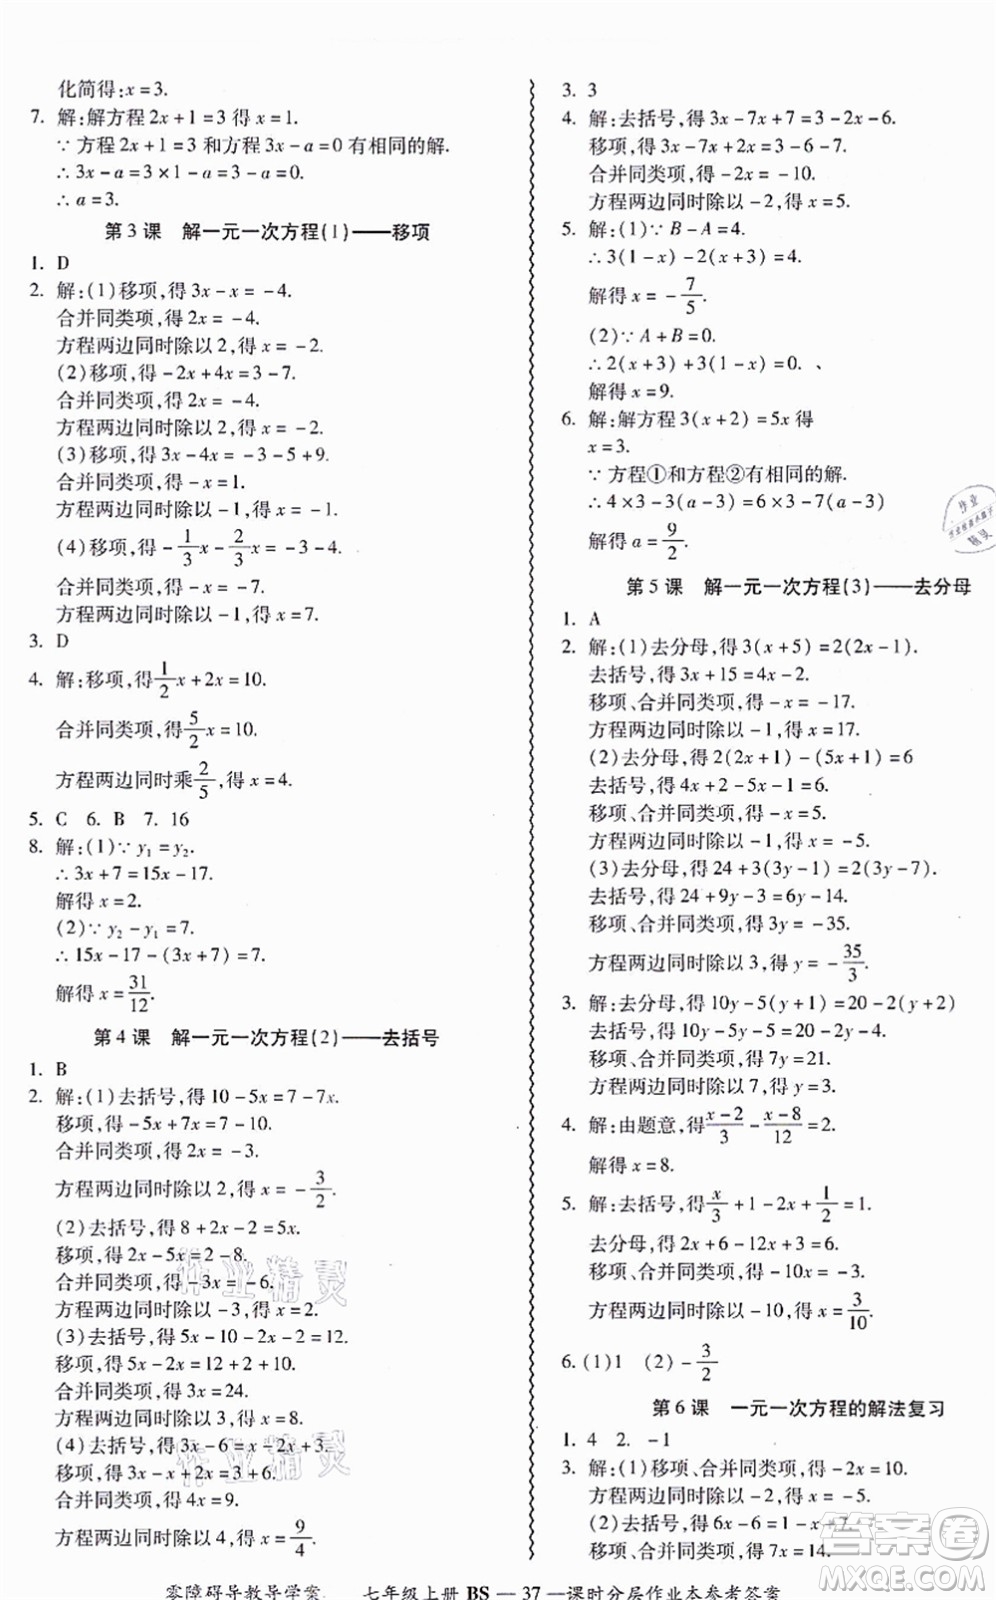 化简得:x=3.
7. 解:解方程 2x+1=3 得 x=1.
∵方程 2x+1=3 和方程 3x-a=0 有相同的解.
∴3x-a=3×1-a=3-a=0.
∴a=3.
第 3 课 解一元一次方程(1)——移项
1. D
2. 解:(1)移项,得 3x-x=-4.
合并同类项,得 2x=-4.
方程两边同时除以 2,得 x=-2.
(2)移项,得-2x+4x=3-7.
合并同类项,得 2x=-4.
方程两边同时除以 2,得 x=-2.
(3)移项,得 3x-4x=-3-5+9.
合并同类项,得-x=1.
方程两边同时除以-1,得 x=-1.
(4)移项,得-1/3x-2/3x=-3-4.
合并同类项,得-x=-7.
方程两边同时除以-1,得 x=7.
3. D
4. 解:移项,得1/2x+2x=10.
合并同类项,得5/2x=10.
方程两边同时乘2/5,得 x=4.
5. C 6. B 7. 16
8. 解:(1)∵y₁=y₂.
∴3x+7=15x-17.
解得 x=2.
(2)∵y₂-y₁=7.
∴15x-17-(3x+7)=7.
解得 x=31/12.
第 4 课 解一元一次方程(2)——去括号
1. B
2. 解:(1)去括号,得 10-5x=7-7x.
移项,得-5x+7x=7-10.
合并同类项,得 2x=-3.
方程两边同时除以 2,得 x=-3/2.
(2)去括号,得 8+2x=5x.
移项,得 2x-5x=2-8.
合并同类项,得-3x=-6.
方程两边同时除以-3,得 x=2.
(3)去括号,得 5x-10-2x-2=12.
移项,得 5x-2x=12+2+10.
合并同类项,得 3x=24.
方程两边同时除以 3,得 x=8.
(4)去括号,得 3x-6+x=3.
移项,得 3x+x=3+6.
合并同类项,得 4x=9.
方程两边同时除以 4,得 x=9/4.
3. 3
4. 解:去括号,得 3x-7x+7=3-2x-6.
移项,得 3x-7x+2x=3-6-7.
合并同类项,得-2x=-10.
方程两边同时除以-2,得 x=5.
5. 解:(1)∵B-A=4.
∴3(1-x)-2(x+3)=4.
解得 x=-7/5.
(2)∵A+B=0.
∴2(x+3)+3(1-x)=0.
解得 x=9.
6. 解:解方程 3(x+2)=5x 得
x=3.
∵方程①和方程②有相同的解.
∴4×3-3(a-3)=6×3-7(a-3)
解得 a=9/2.
第 5 课 解一元一次方程(3)——去分母
1. A
2. 解:(1)去分母,得 3(x+5)=2(2x-1).
去括号,得 3x+15=4x-2.
移项、合并同类项,得-x=-17.
方程两边同时除以-1,得 x=17.
(2)去分母,得 2(2x+1)-(5x+1)=6
去括号,得 4x+2-5x-1=6.
移项、合并同类项,得-x=5.
方程两边同时除以-1,得 x=-5.
(3)去分母,得 24+3(3y-1)=2(3y-7).
去括号,得 24+9y-3=6y-14.
移项、合并同类项,得 3y=-35.
方程两边同时除以 3,得 y=-35/3.
3. 解:去分母,得 10y-5(y+1)=20-2(y+2)
去括号,得 10y-5y-5=20-2y-4.
移项、合并同类项,得 7y=21.
方程两边同时除以 7,得 y=3.
4. 解:由题意,得(x-2)/3-(x-8)/12=2.
解得 x=8.
5. 解:去括号,得x/3+1-2x+1/2=1.
去分母,得 2x+6-12x+3=6.
移项、合并同类项,得-10x=-3.
方程两边同时除以-10,得 x=3/10.
6. (1)1 (2)-3/2
第 6 课 一元一次方程的解法复习
1. 4 2. -1
3. 解:(1)移项、合并同类项,得-2x=10.
方程两边同时除以-2,得 x=-5.
(2)去括号,得 6x-6-x+1=7.
零障碍导教导学案 七年级上册 BS — 37 —课时分层作业本参考答案
作业精灵
作业精灵
答案卷